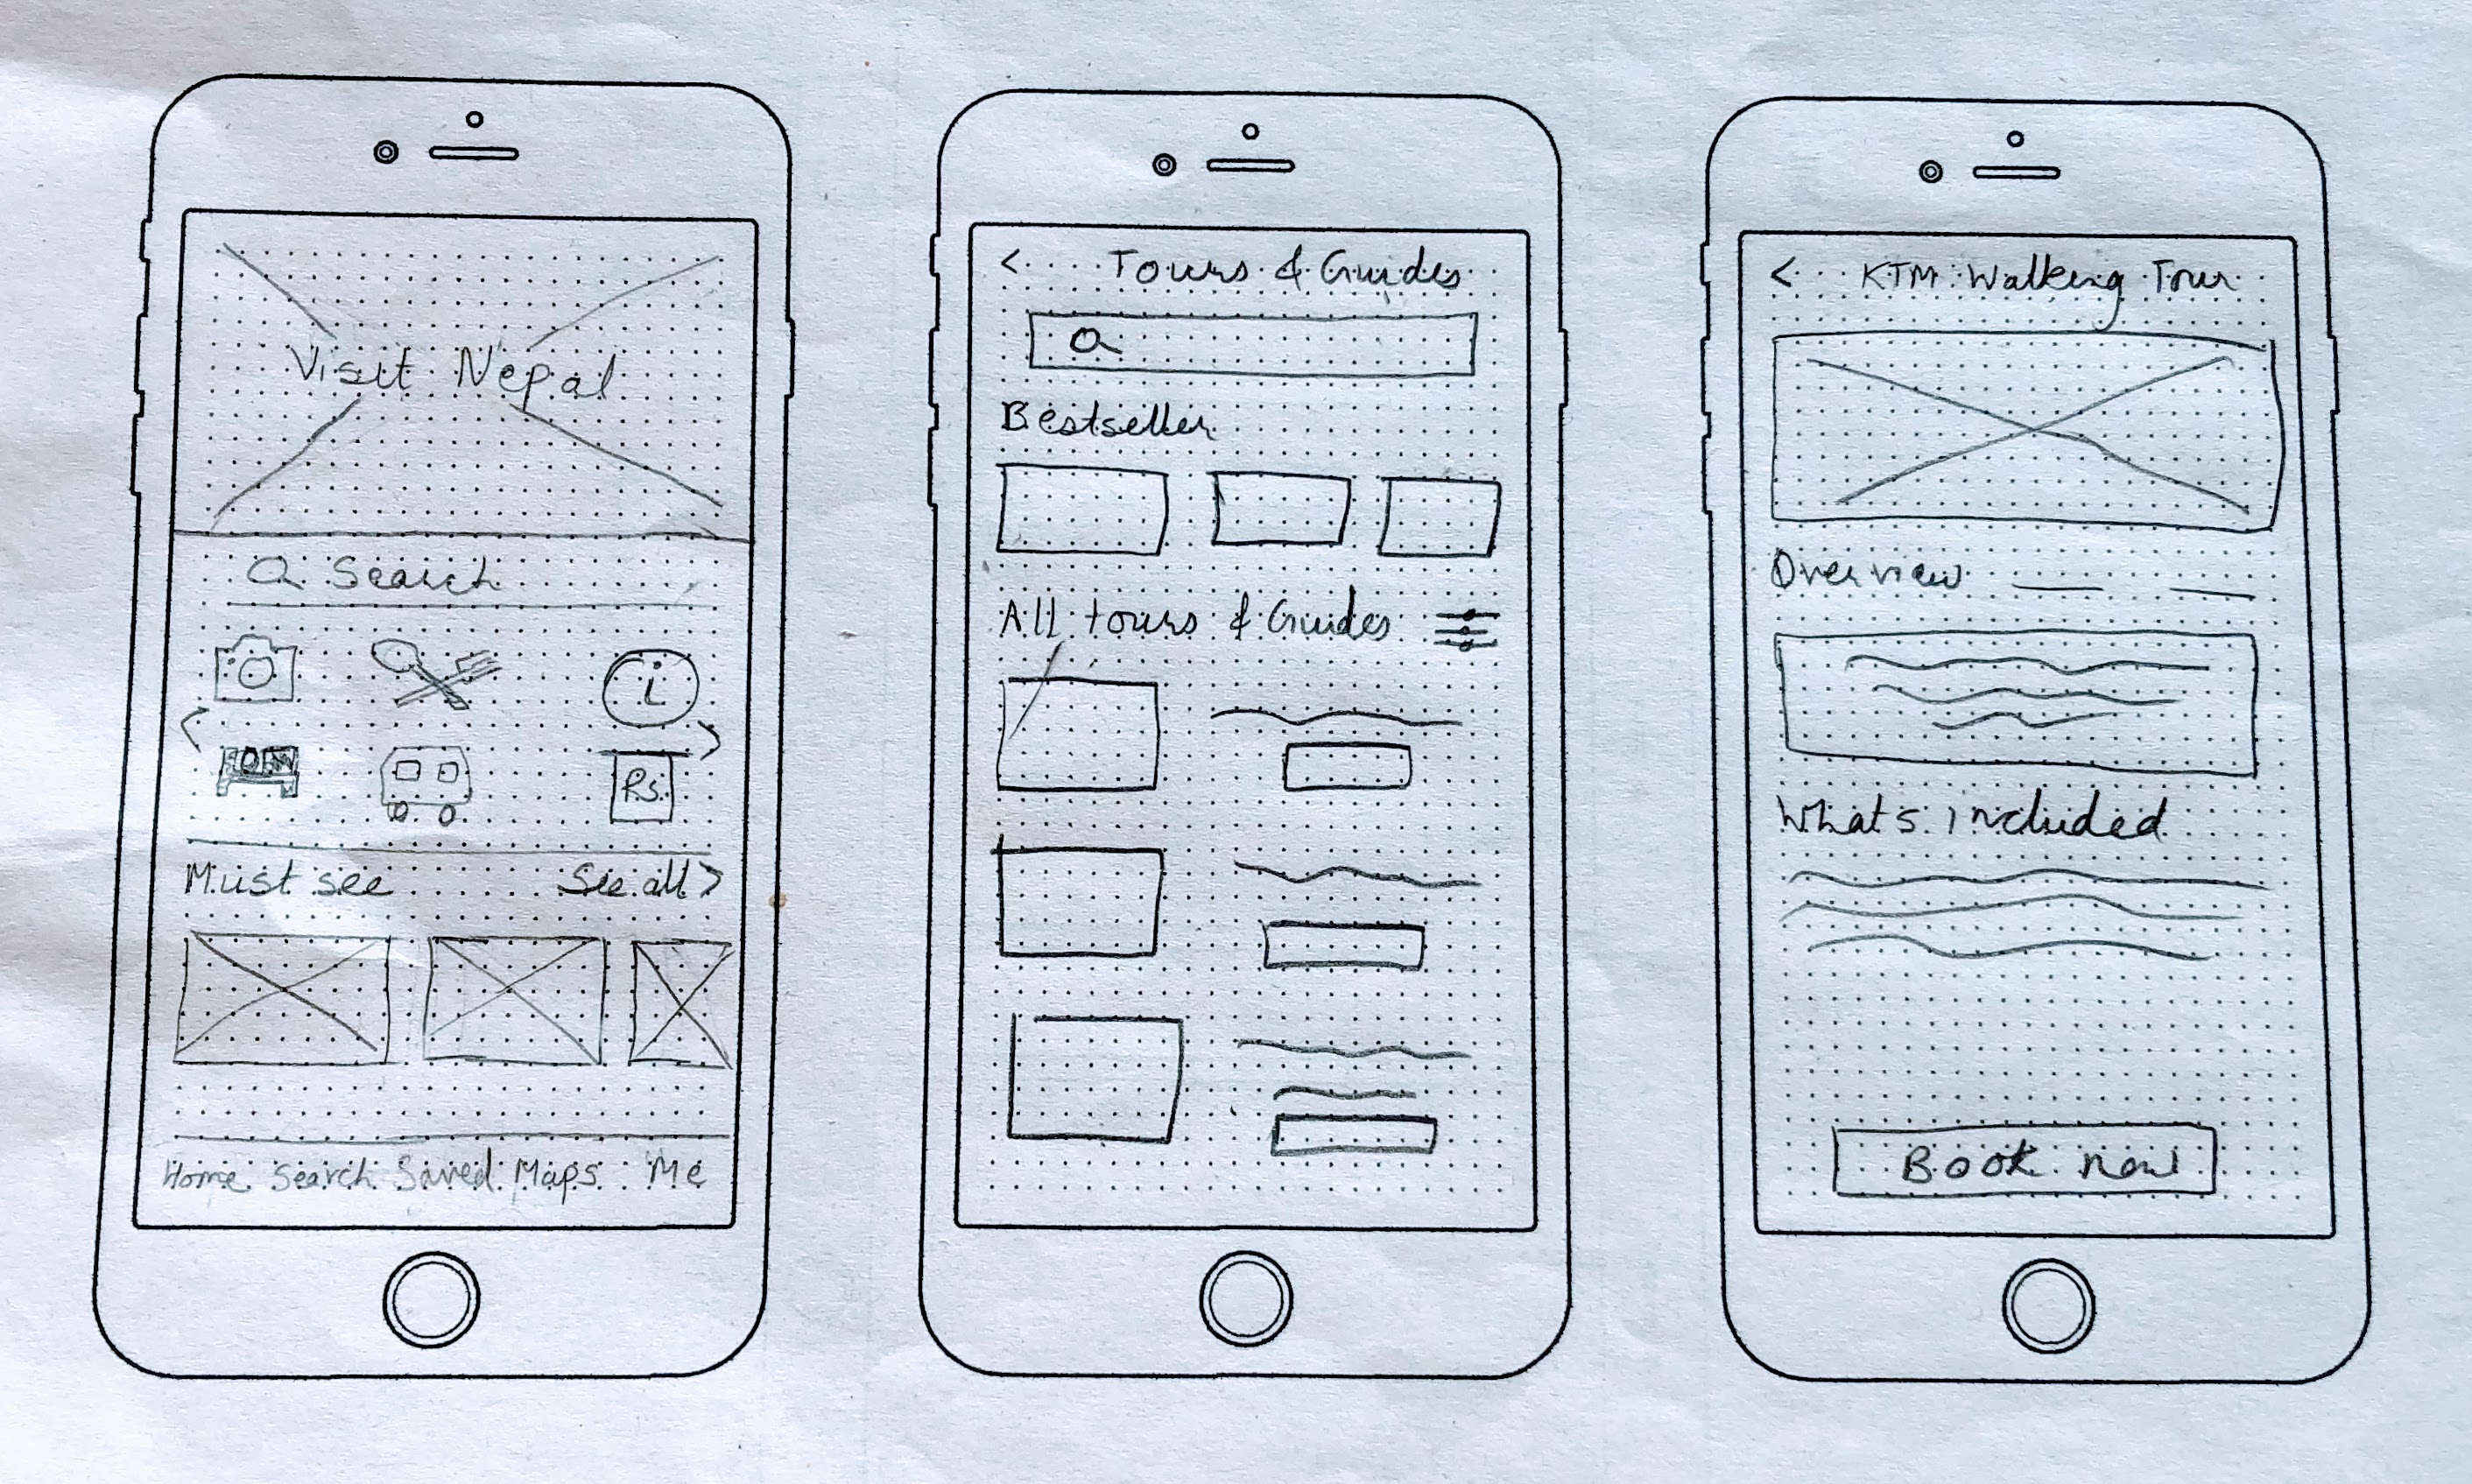 Visit Nepal
Search
i
Rs.
Must see
See all >
Home Search Saved Maps Me
< Tours & Guides
Bestseller
All tours & Guides
< KTM Walking Tour
Overview
Whats included
Book now